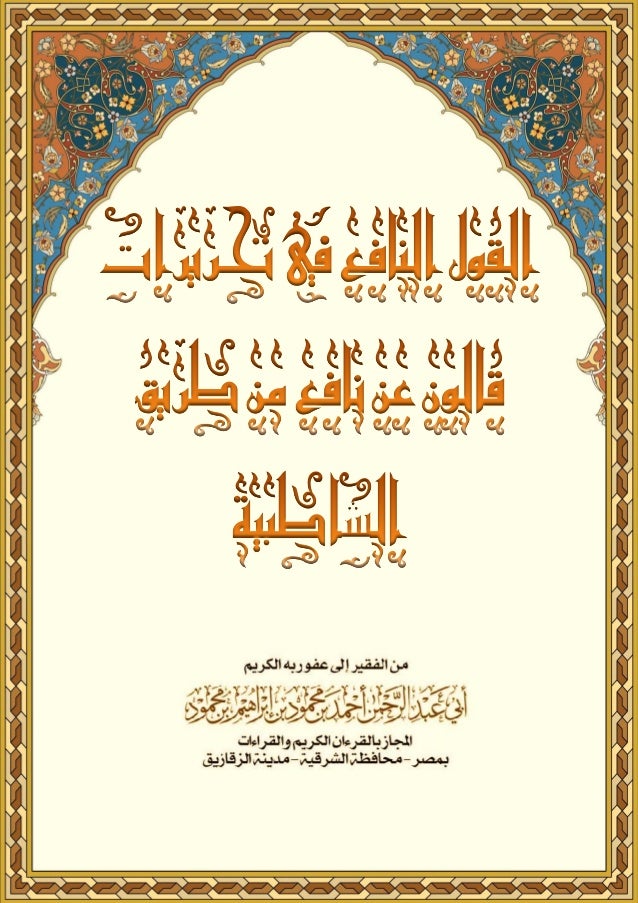 القول النافع في تحريرات
قالون عن نافع من طريق
الشاطبية
من الفقير إلى عفو ربه الكريم
أبي عَبْدِ الرَّحْمٰنِ أَحْمَدَ بْنِ مَحْمُودِ بْنِ إِبْرَاهِيمَ بْنِ مَحْمُودٍ
المجاز بالقرءان الكريم والقراءات
بمصر - محافظة الشرقية - مدينة الزقازيق